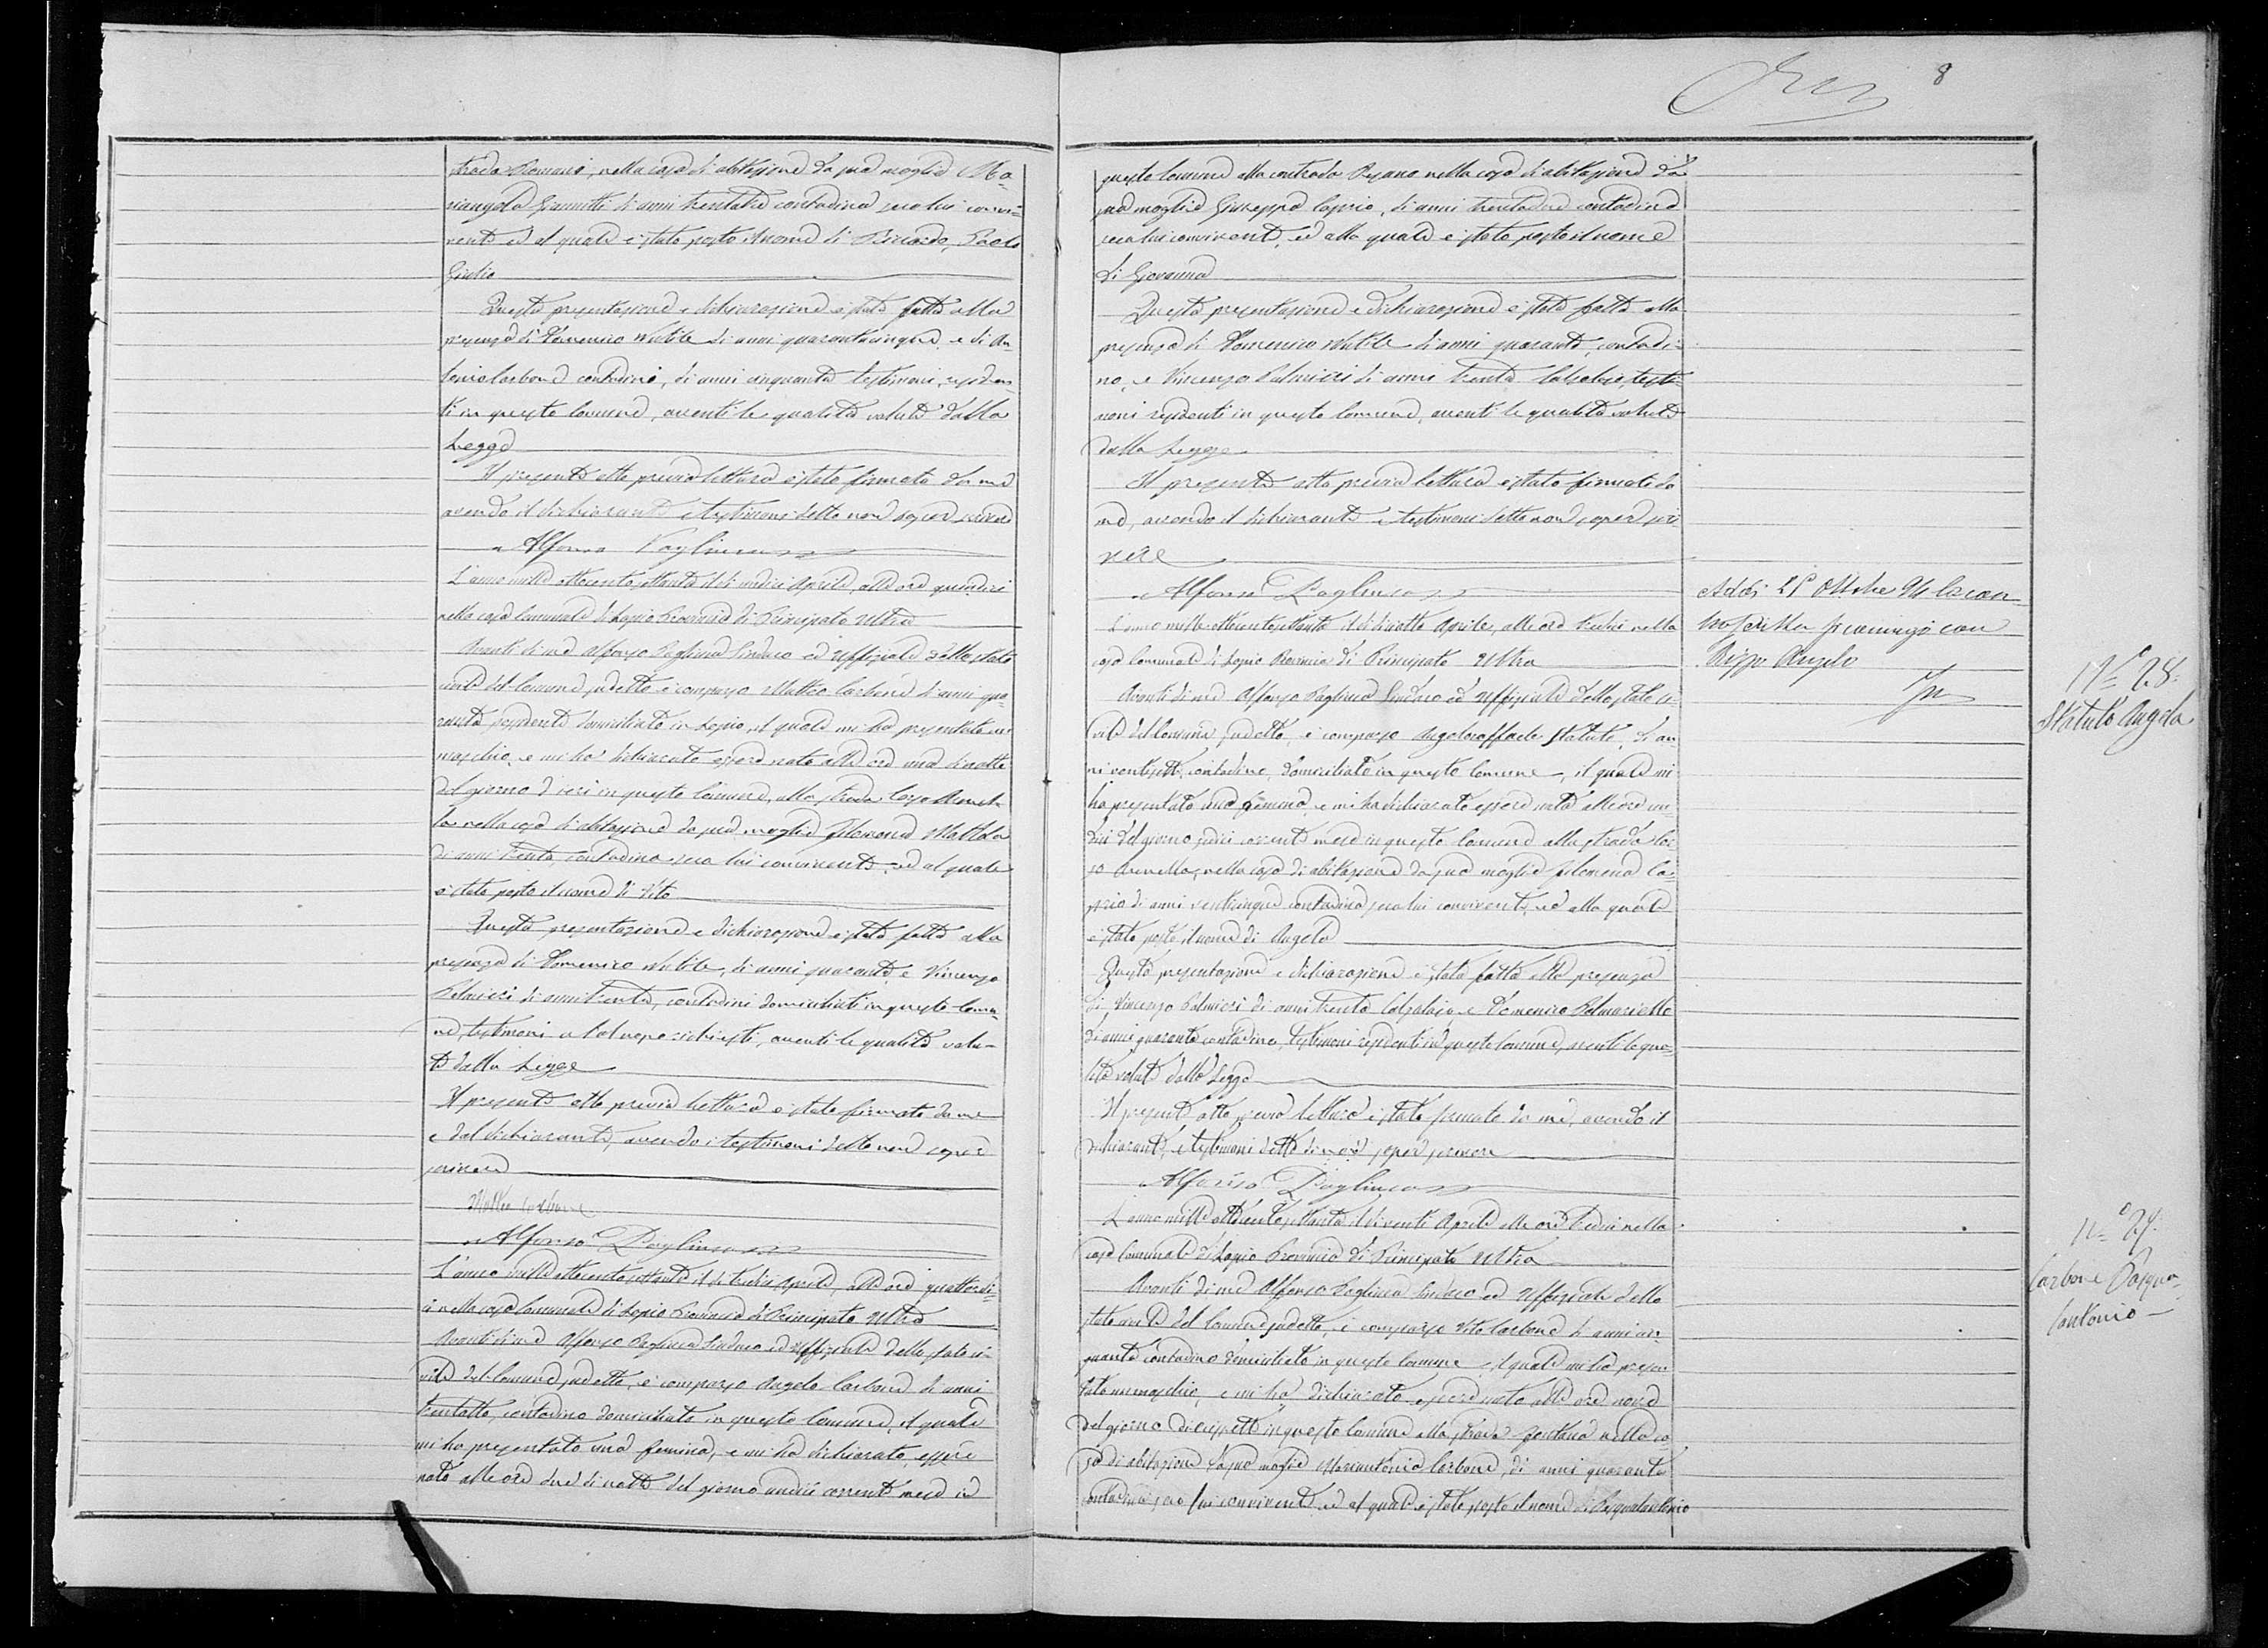 8
trada Romano, nella casa di abitazione da sua moglie Ma-
riangela Giannitti di anni trentatre contadina seco lui convi-
vente ed al quale è stato posto il nome di Riccardo, Paolo
Giulio
Questa presentazione e dichiarazione è stata fatta alla
presenza di Domenico Nutile di anni quarantacinque, e di An-
tonio Carbone contadini, di anni cinquanta testimoni, residen-
ti in questo Comune, aventi le qualità volute dalla
Legge
Il presente atto previa lettura è stato firmato da me
avendo il dichiarante e testimoni detto non saper scrivere
Alfonso Pagliuca
L'anno mille ottocento settanta il dì undici Aprile, alle ore quindici
nella casa Comunale di Lapio Provincia di Principato Ultra
Avanti di me Alfonso Pagliuca Sindaco ed Uffiziale dello stato
civile del Comune sudetto è comparso Matteo Carbone di anni qua-
ranta possidente domiciliato in Lapio, il quale mi ha presentato un
maschio, e mi ha dichiarato essere nato alle ore una di notte
del giorno d'ieri in questo Comune, alla strada Capo
la nella casa di abitazione da sua moglie Filomena Mattola
di anni trenta contadina seco lui convivente, ed al quale
è stato posto il nome di Vito
Questa presentazione e dichiarazione è stata fatta alla
presenza di Domenico Nutile, di anni quaranta, e Vincenzo
Palmieri di anni trenta, contadini domiciliati in questo Comu-
ne, testimoni a tal uopo richiesti, aventi le qualità volu-
te dalla Legge
Il presente atto previa lettura è stato firmato da me
e dal dichiarante, avendo i testimoni detto non saper
scrivere
Matteo Carbone
Alfonso Pagliuca
L'anno mille ottocento settanta il dì tredici Aprile, alle ore quattordi-
ci nella casa Comunale di Lapio Provincia di Principato Ultra
Avanti di me Alfonso Pagliuca Sindaco ed uffiziale dello stato ci-
vile del Comune sudetto, è comparso Angelo Carbone di anni
trentotto, contadino domiciliato in questo Comune, il quale
mi ha presentato una femina, e mi ha dichiarato, essere
nata alle ore due di notte del giorno undici corrente mese in
questo Comune alla contrada Pesano nella casa di abitazione da
sua moglie Giuseppa Caprio, di anni trentadue contadina
seco lui convivente, ed alla quale è stato posto il nome
di Giovanna
Questa presentazione e dichiarazione è stata fatta alla
presenza di Domenico Nutile di anni quaranta, contadi-
no, e Vincenzo Palmieri di anni trenta Calzolajo, testi-
moni residenti in questo Comune, aventi le qualità volute
dalla Legge
Il presente atto previa lettura è stato firmato da
me, avendo il dichiarante e testimoni detto non saper scri
vere
Alfonso Pagliuca
L'anno mille ottocento settanta il dì diciotto Aprile, alle ore tredici nella
casa Comunale di Lapio Provincia di Principato Ultra
Avanti di me Alfonso Pagliuca Sindaco ed Uffiziale dello stato ci-
vile del Comune sudetto, è comparso Angeloraffaele Statuto, di an-
ni ventisette, contadino, domiciliato in questo Comune, il quale mi
ha presentato una femina, e mi ha dichiarato essere nata alle ore un-
dici del giorno sedici corrente mese in questo Comune alla strada Ca-
po Arenella, nella casa di abitazione da sua moglie Filomena Ca-
prio di anni venticinque contadina seco lui convivente, ed alla quale
è stato posto il nome di Angela
Questa presentazione e dichiarazione è stata fatta alla presenza
di Vincenzo Palmieri di anni trenta Calzolajo, e Domenico Palmariello
di anni quaranta contadino, testimoni residenti in questo Comune, aventi le qua-
lità volute dalla Legge
Il presente atto previa lettura è stato firmato da me, avendo il
dichiarante, e testimoni detto di non saper scrivere
Alfonso Pagliuca
L'anno mille ottocento settanta il dì venti Aprile alle ore tredici nella
casa Comunale di Lapio Provincia di Principato Ultra
Avanti di me Alfonso Pagliuca Sindaco ed Uffiziale dello
stato civile del Comune sudetto, è comparso Vito Carbone di anni cin
quanta contadino domiciliato in questo Comune, il quale mi ha presen
tato un maschio, e mi ha dichiarato essere nato alle ore nove
del giorno diciassette in questo Comune alla strada Fontana nella ca-
sa di abitazione da sua moglie Mariantonia Carbone, di anni quaranta
contadina seco lui convivente ed al quale è stato posto il nome di Pasqualantonio
Addì 25 Ottobre 94 la con
troscritta si coniugò con
Rizzo Angelo
N.° 28.
Statuto Angela
N.° 29.
Carbone Pasqua-
lantonio